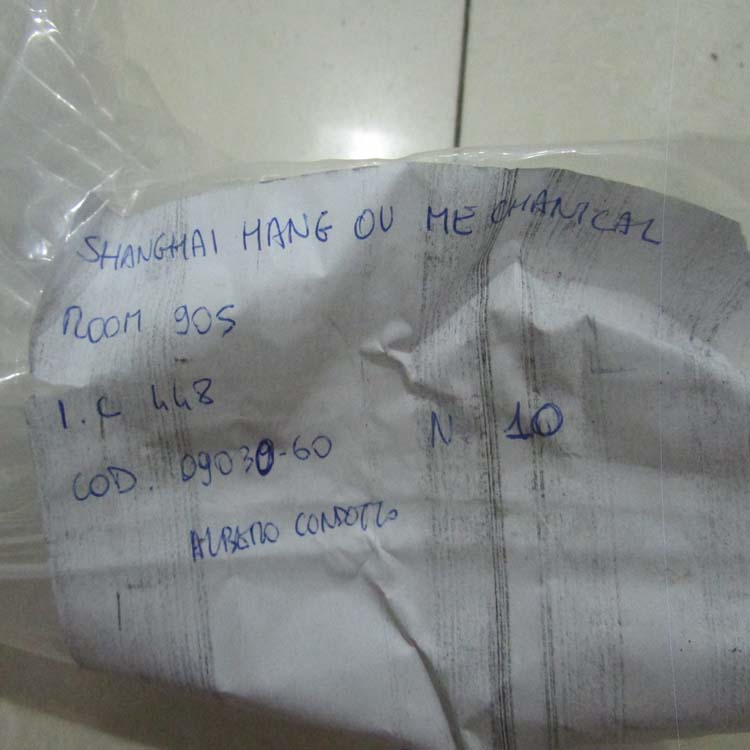 SHANGHAI HANG OU MECHANICAL
ROOM 905
1.C 448
COD. 09030-60 N 10
ALBERO CONDOTTO